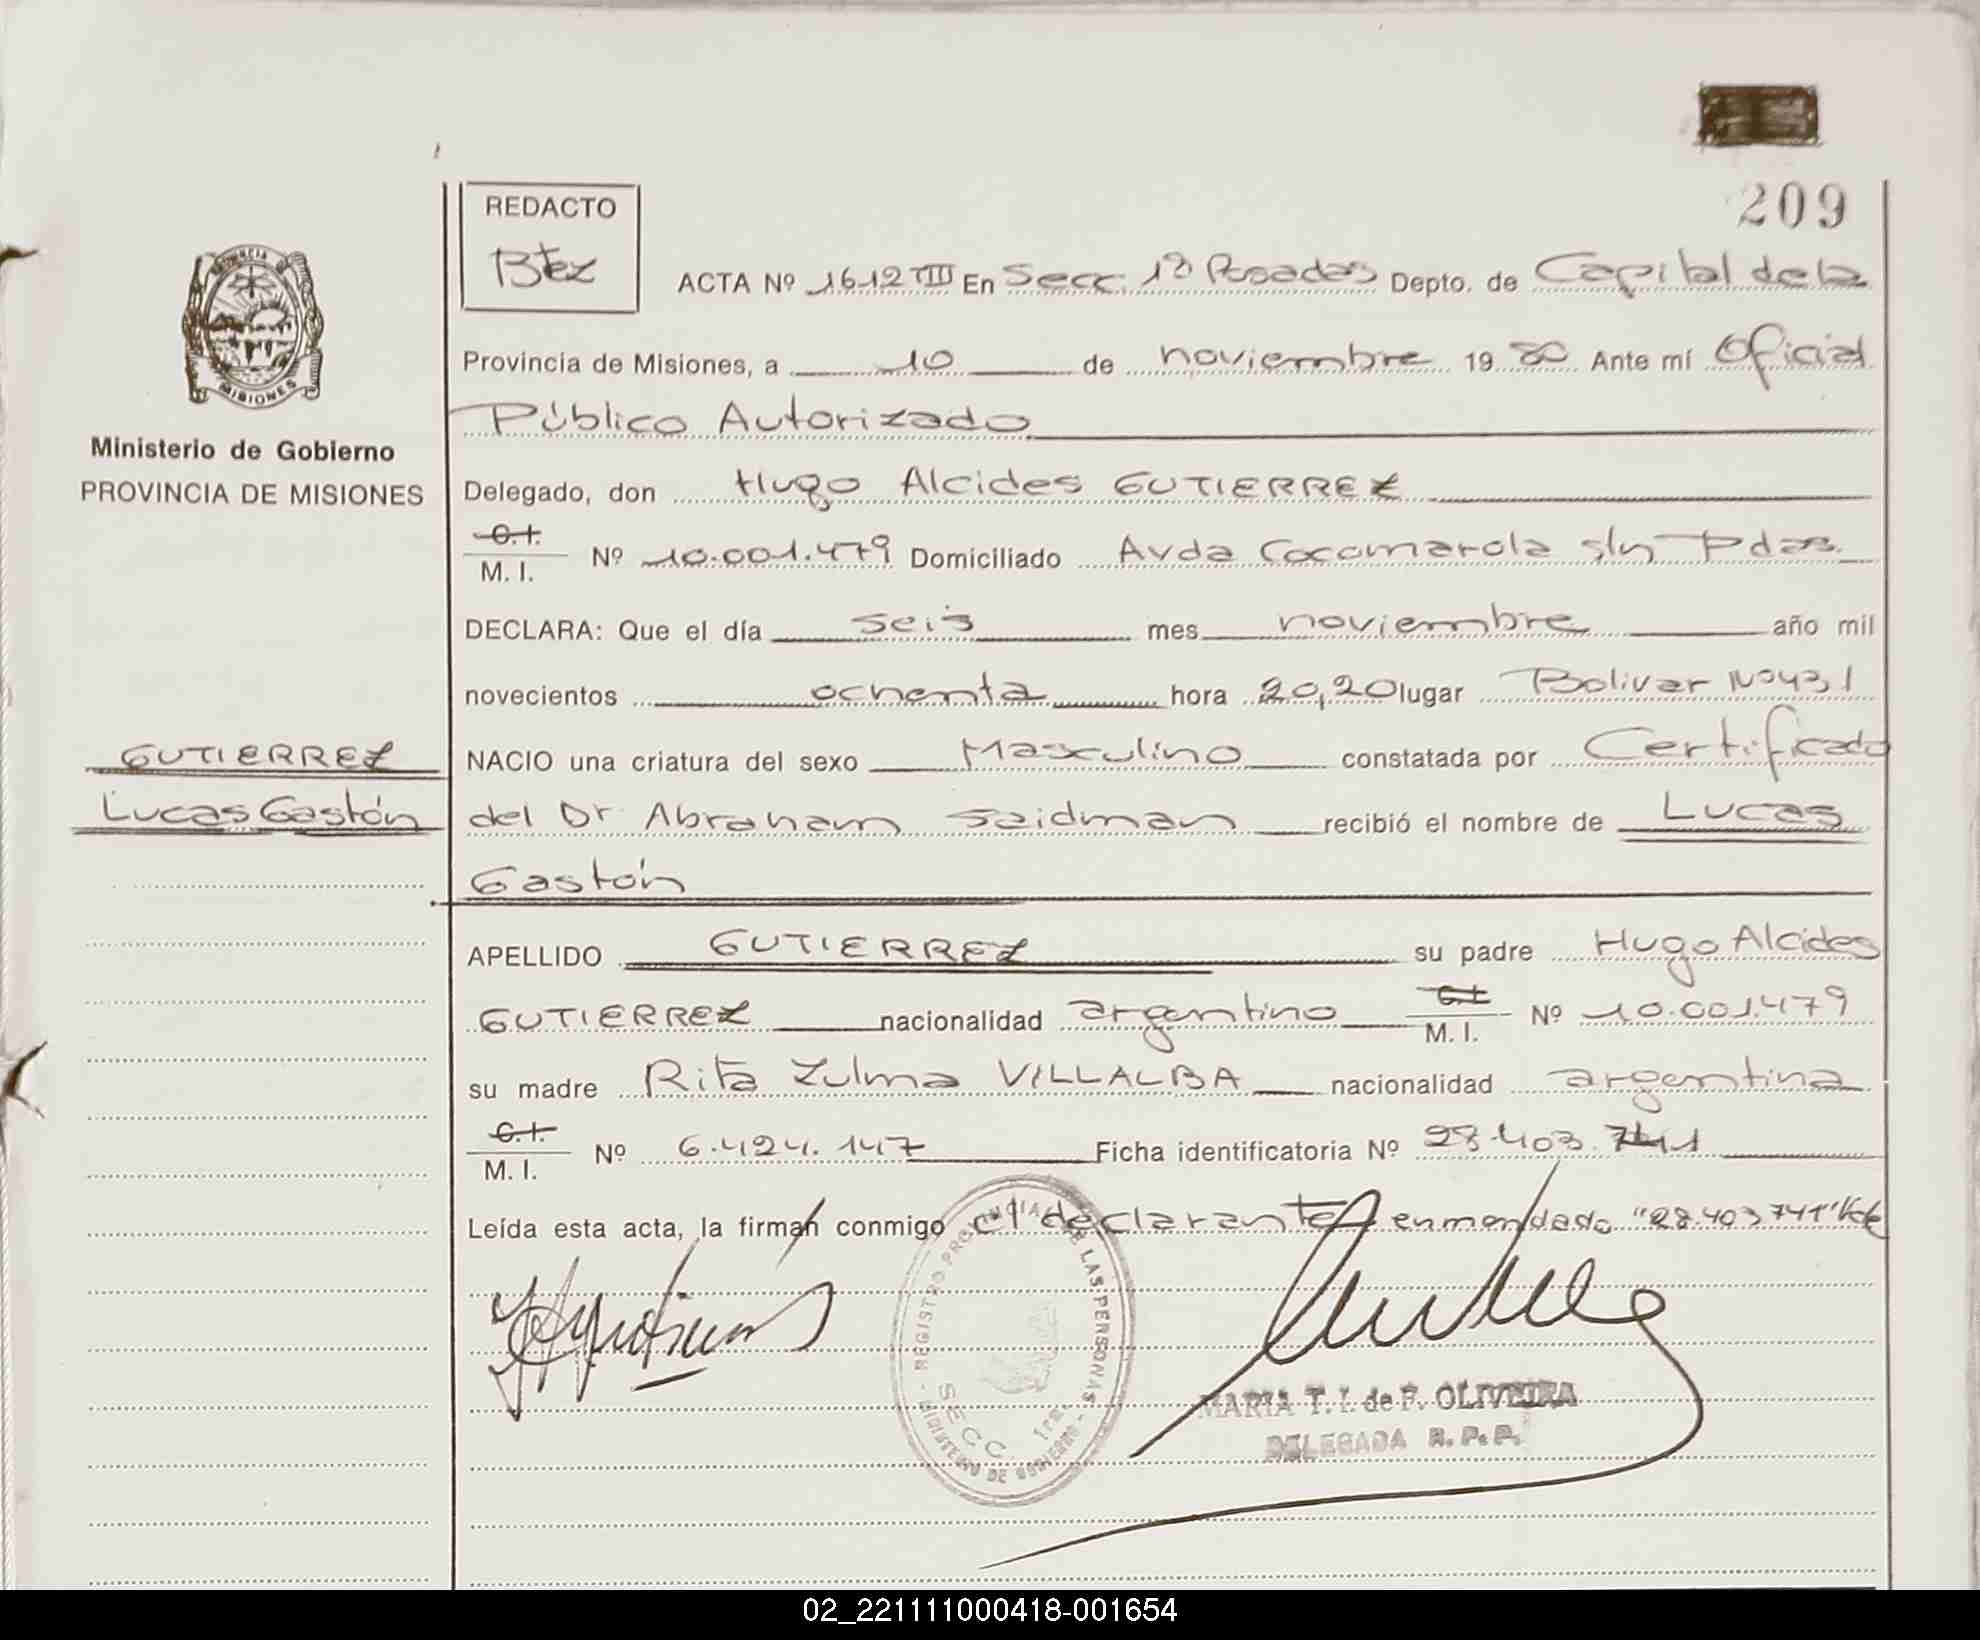 209
REDACTO
Btez
ACTA Nº 1612 TIII En Secc. 1º Posadas Depto. de Capital de la
Provincia de Misiones, a 10 de noviembre 1980 Ante mí Oficial
Público Autorizado
Delegado, don Hugo Alcides GUTIERREZ
C.I.
M. I. Nº 10.001.479 Domiciliado Avda Cocomarola s/n Pdas.
DECLARA: Que el día seis mes noviembre año mil
novecientos ochenta hora 20,20 lugar Bolivar Nº431
NACIO una criatura del sexo Masculino constatada por Certificado
del Dr Abraham Seidman recibió el nombre de Lucas
Gastón
APELLIDO GUTIERREZ su padre Hugo Alcides
GUTIERREZ nacionalidad argentino C.I.
M. I. Nº 10.001.479
su madre Rita Zulma VILLALBA nacionalidad argentina
C.I.
M. I. Nº 6.424.147 Ficha identificatoria Nº 28.403.741
Leída esta acta, la firman conmigo el declarante enmendado "28.403741" Vale
PROVINCIA DE MISIONES
Ministerio de Gobierno
PROVINCIA DE MISIONES
GUTIERREZ
Lucas Gastón
REGISTRO PROVINCIAL DE LAS PERSONAS
MINISTERIO DE GOBIERNO
SECC 1ra.
MARIA T. I. de F. OLIVEIRA
DELEGADA R. P. P.
02_221111000418-001654